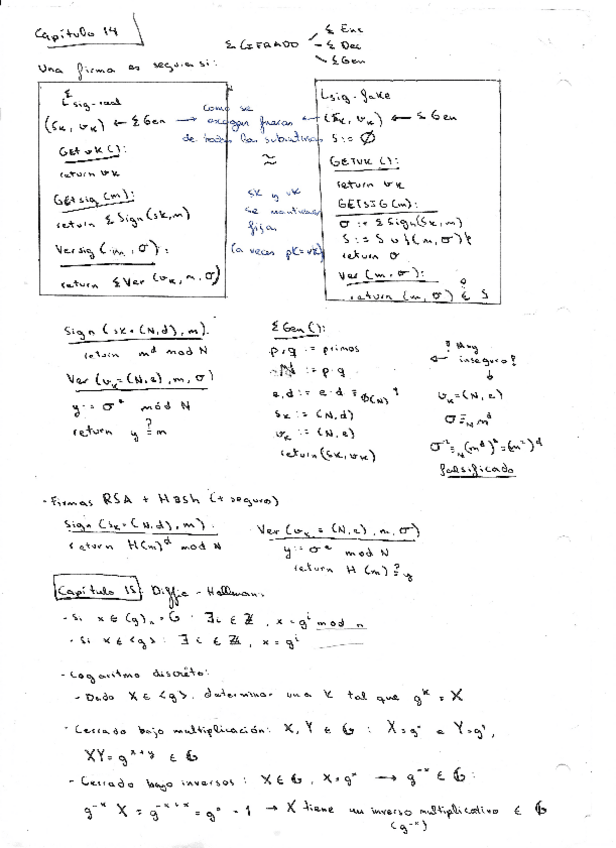 Capítulo 14
Σ CIFRADO
Σ Enc
Σ Dec
Σ Gen
Una firma es segura si:
Σ
L sig-real
(sk, vk) ← Σ Gen
GETvk():
return vk
GETsig(m):
return Σ Sign(sk, m)
Versig(m, σ):
return Σ Ver(vk, m, σ)
como se
de todas las subrutinas
≈
sk y vk
se mantienen
fijas
(a veces pk=vk)
L sig-fake
(sk, vk) ← Σ Gen
S := ∅
GETVK():
return vk
GETSIG(m):
σ := Σ Sign(sk, m)
S := S ∪ {(m, σ)}
return σ
Ver(m, σ):
return (m, σ) ∈ S
Sign(sk = (N, d), m).
return m^d mod N
Ver(vk = (N, e), m, σ)
y := σ^e mód N
return y ?= m
Σ Gen():
p, q := primos
N := p·q
e, d := e·d ≡_Φ(N) 1
sk := (N, d)
vk := (N, e)
return (sk, vk)
¡ Muy
inseguro !
vk = (N, e)
σ ≡_N m^d
σ² ≡_N (m^d)² = (m²)^d
falsificado
- Firmas RSA + Hash (+ seguro)
Sign(sk = (N, d), m).
return H(m)^d mod N
Ver(vk = (N, e), m, σ)
y := σ^e mod N
return H(m) ?= y
Capítulo 15: Diffie - Hellman:
- Si x ∈ ⟨g⟩n = G : ∃i ∈ ℤ, x = g^i mod n
- Si x ∈ ⟨g⟩ : ∃i ∈ ℤ, x = g^i
- Logaritmo discreto:
- Dado X ∈ ⟨g⟩, determinar una x tal que g^x = X
- Cerrado bajo multiplicación: X, Y ∈ G : X = g^x ∧ Y = g^y,
XY = g^x+y ∈ G
- Cerrado bajo inversos: X ∈ G, X = g^x → g^-x ∈ G:
g^-x X = g^-x+x = g^0 = 1 → X tiene un inverso multiplicativo ∈ G
(g^-x)